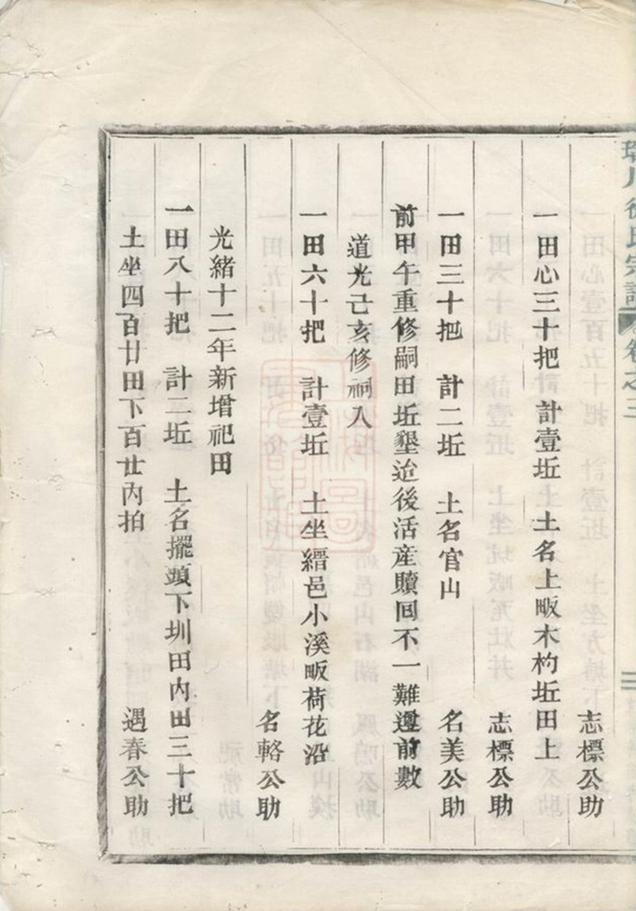 志標公助
一田心三十把　計壹坵　土名上畈木杓坵田上
志標公助
一田三十把　計二坵　土名官山　名美公助
前甲午重修嗣田坵墾迨後活産贖回不一難遵前數
道光己亥修祠入
一田六十把　計壹坵　土坐縉邑小溪畈荷花沿
名輅公助
光緒十二年新增祀田
一田八十把　計二坵　土名擺頭下圳田内田三十把
土坐四百廿田下百廿内拍　遇春公助
徐氏宗譜　卷之三